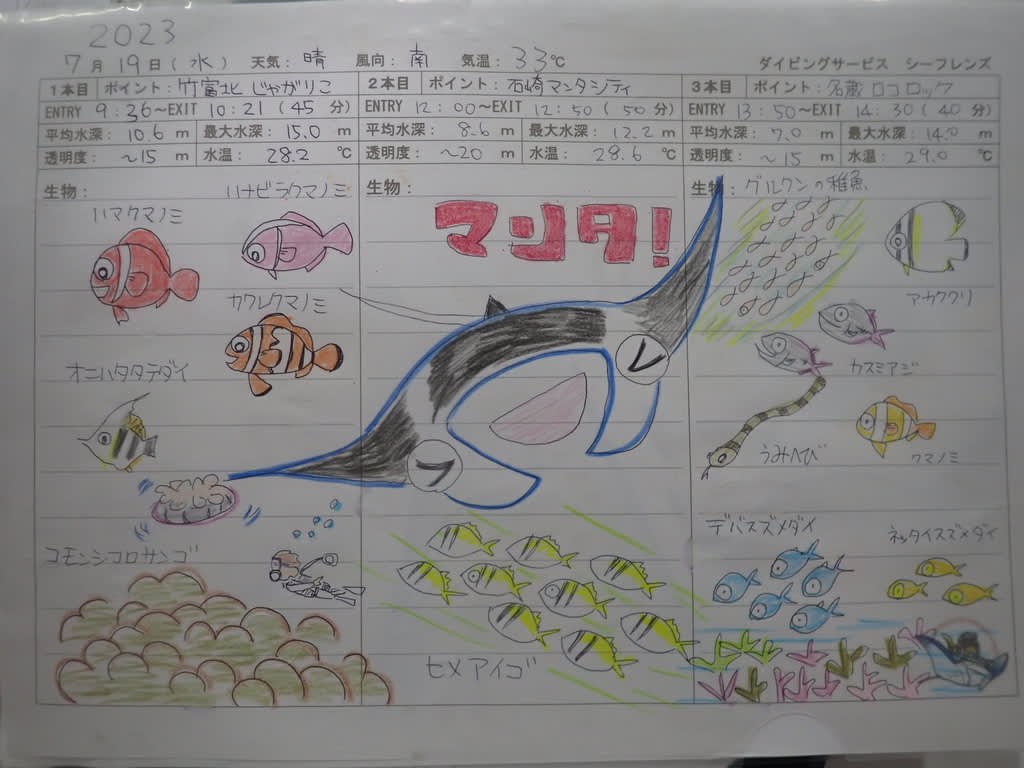 2023
7月19日(水) 天気：晴 風向：南 気温：33℃ ダイビングサービス シーフレンズ
1本目 ポイント：竹富北 じゃがりこ
ENTRY 9：36～EXIT 10：21(45分)
平均水深：10.6m 最大水深：15.0m
透明度：～15m 水温：28.2℃
生物：
ハナビラクマノミ
ハマクマノミ
カクレクマノミ
オニハタタテダイ
コモンシコロサンゴ
2本目 ポイント：石崎マンタシティ
ENTRY 12：00～EXIT 12：50(50分)
平均水深：8.6m 最大水深：12.2m
透明度：～20m 水温：28.6℃
生物：
マンタ!
ヒメアイゴ
3本目 ポイント：名蔵 ロコロック
ENTRY 13：50～EXIT 14：30(40分)
平均水深：7.0m 最大水深：14.0m
透明度：～15m 水温：29.0℃
生物：グルクンの稚魚
アカククリ
カスミアジ
うみへび
クマノミ
デバスズメダイ
ネッタイスズメダイ